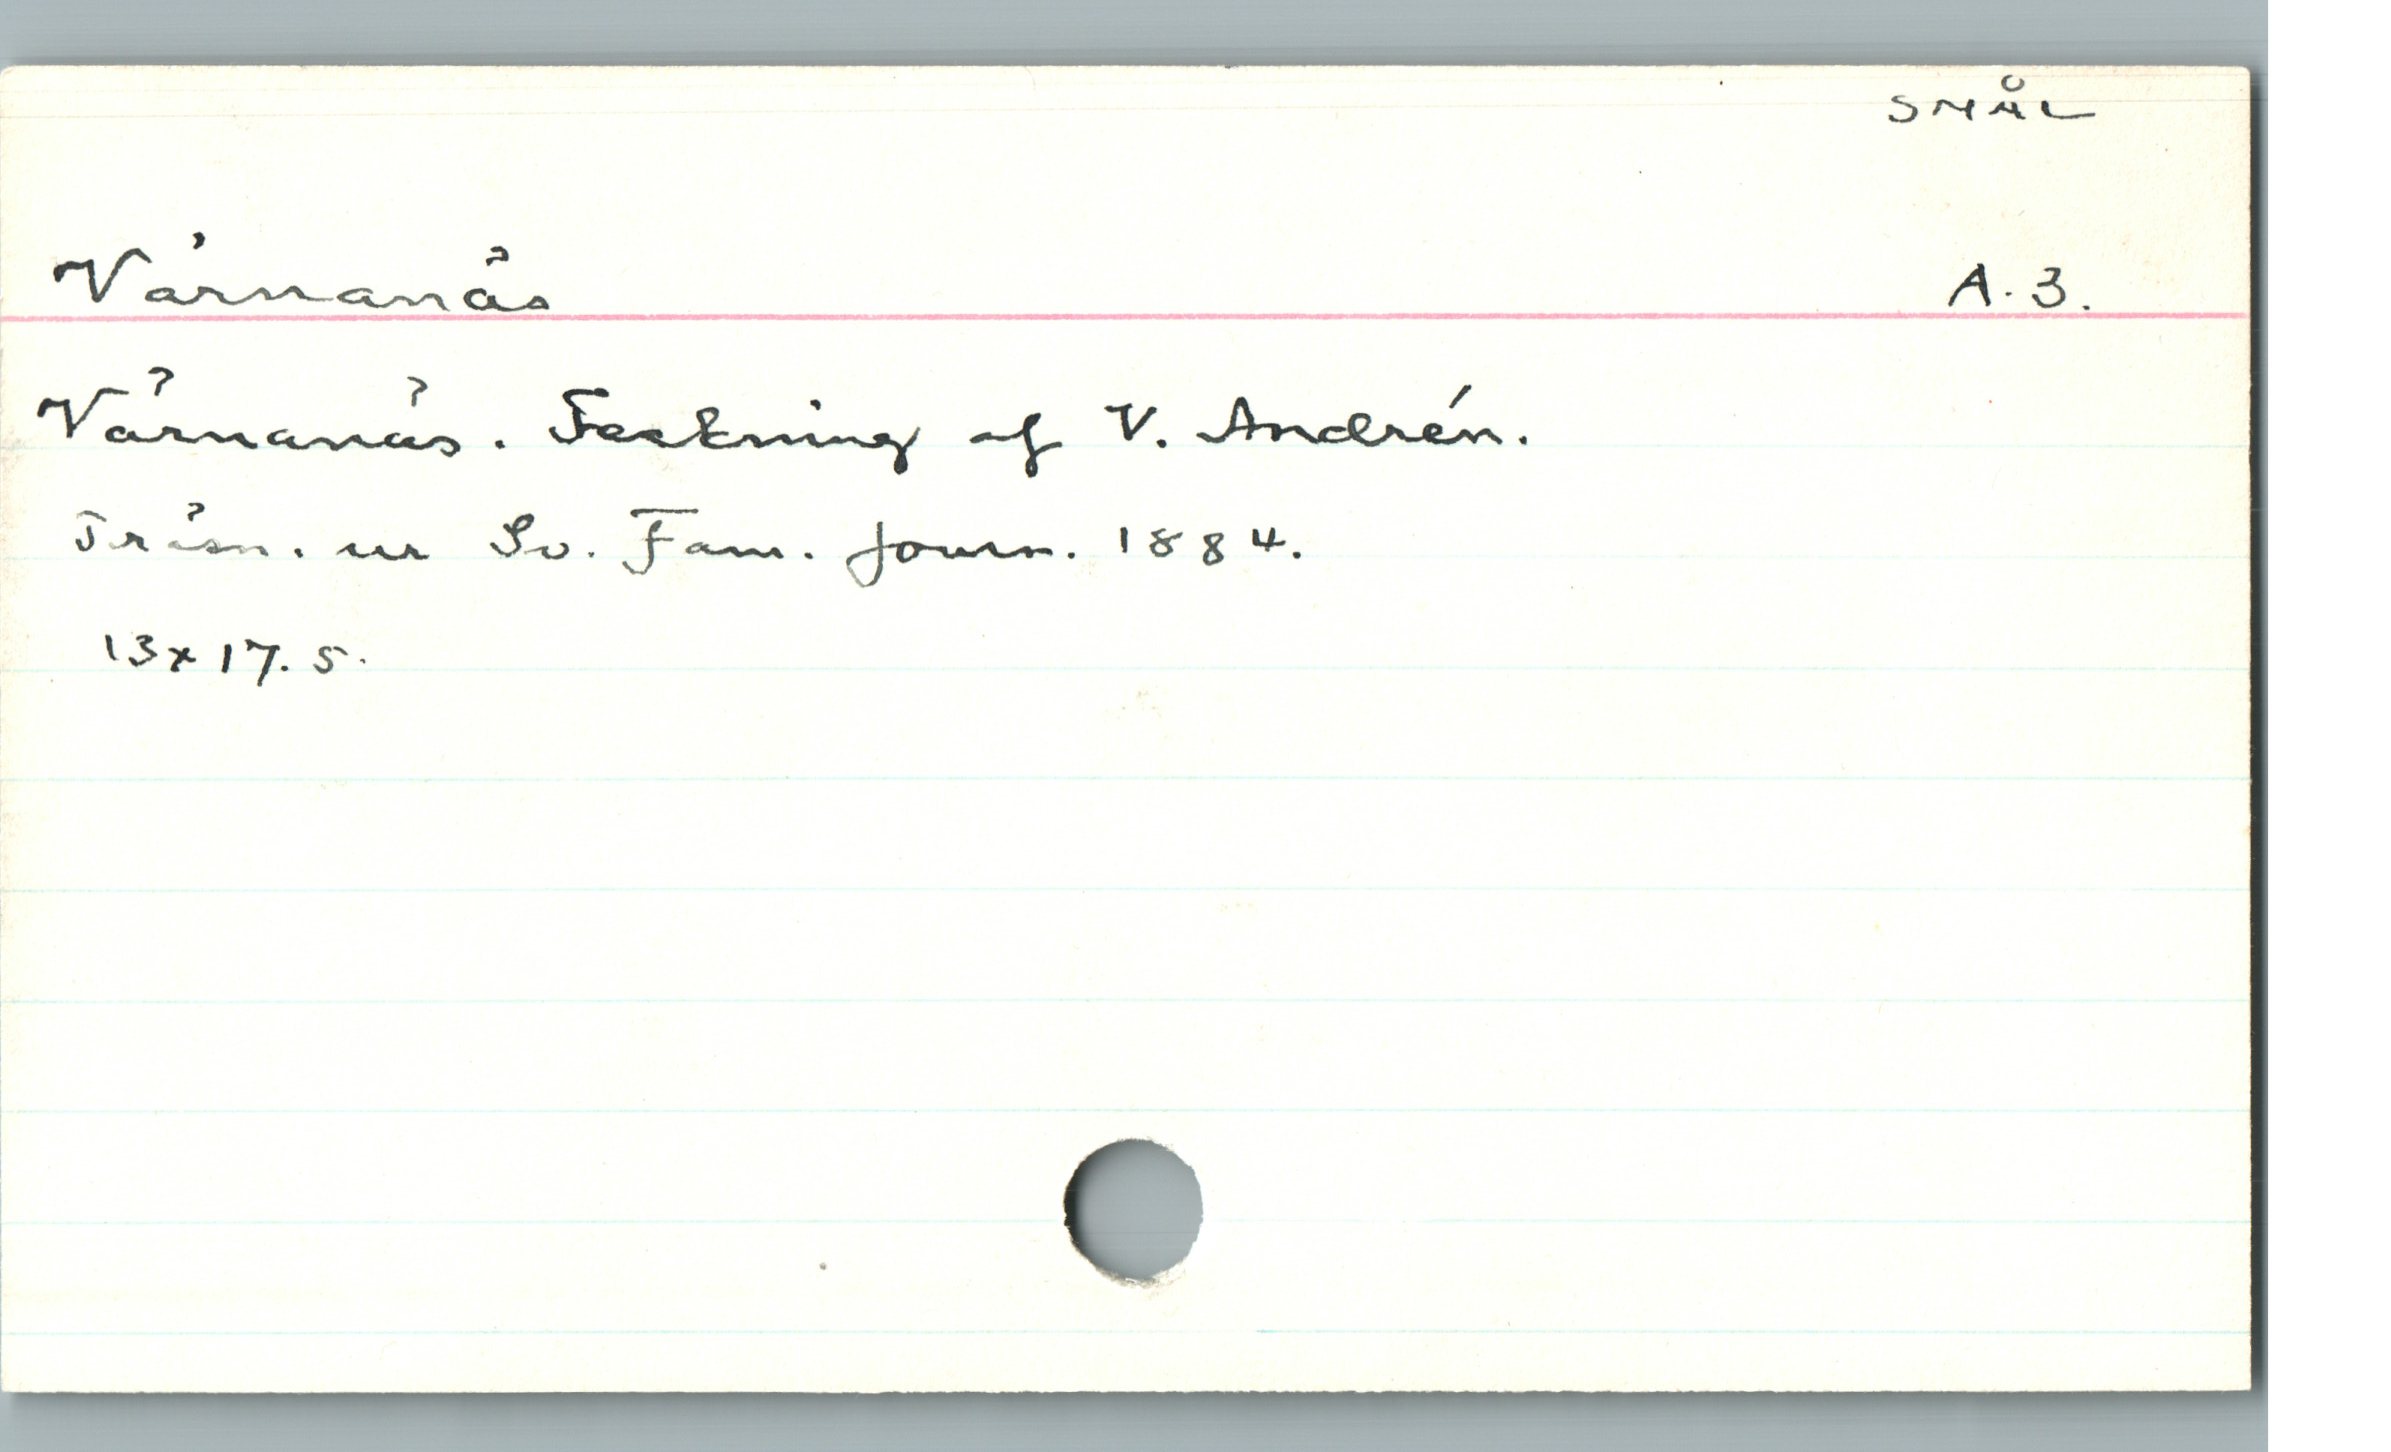 SMÅL
Värnanäs A. 3.
Värnanäs. Teckning af V. Andrén.
Träsn. ur Sv. Fam. Journ. 1884.
13x17.5.